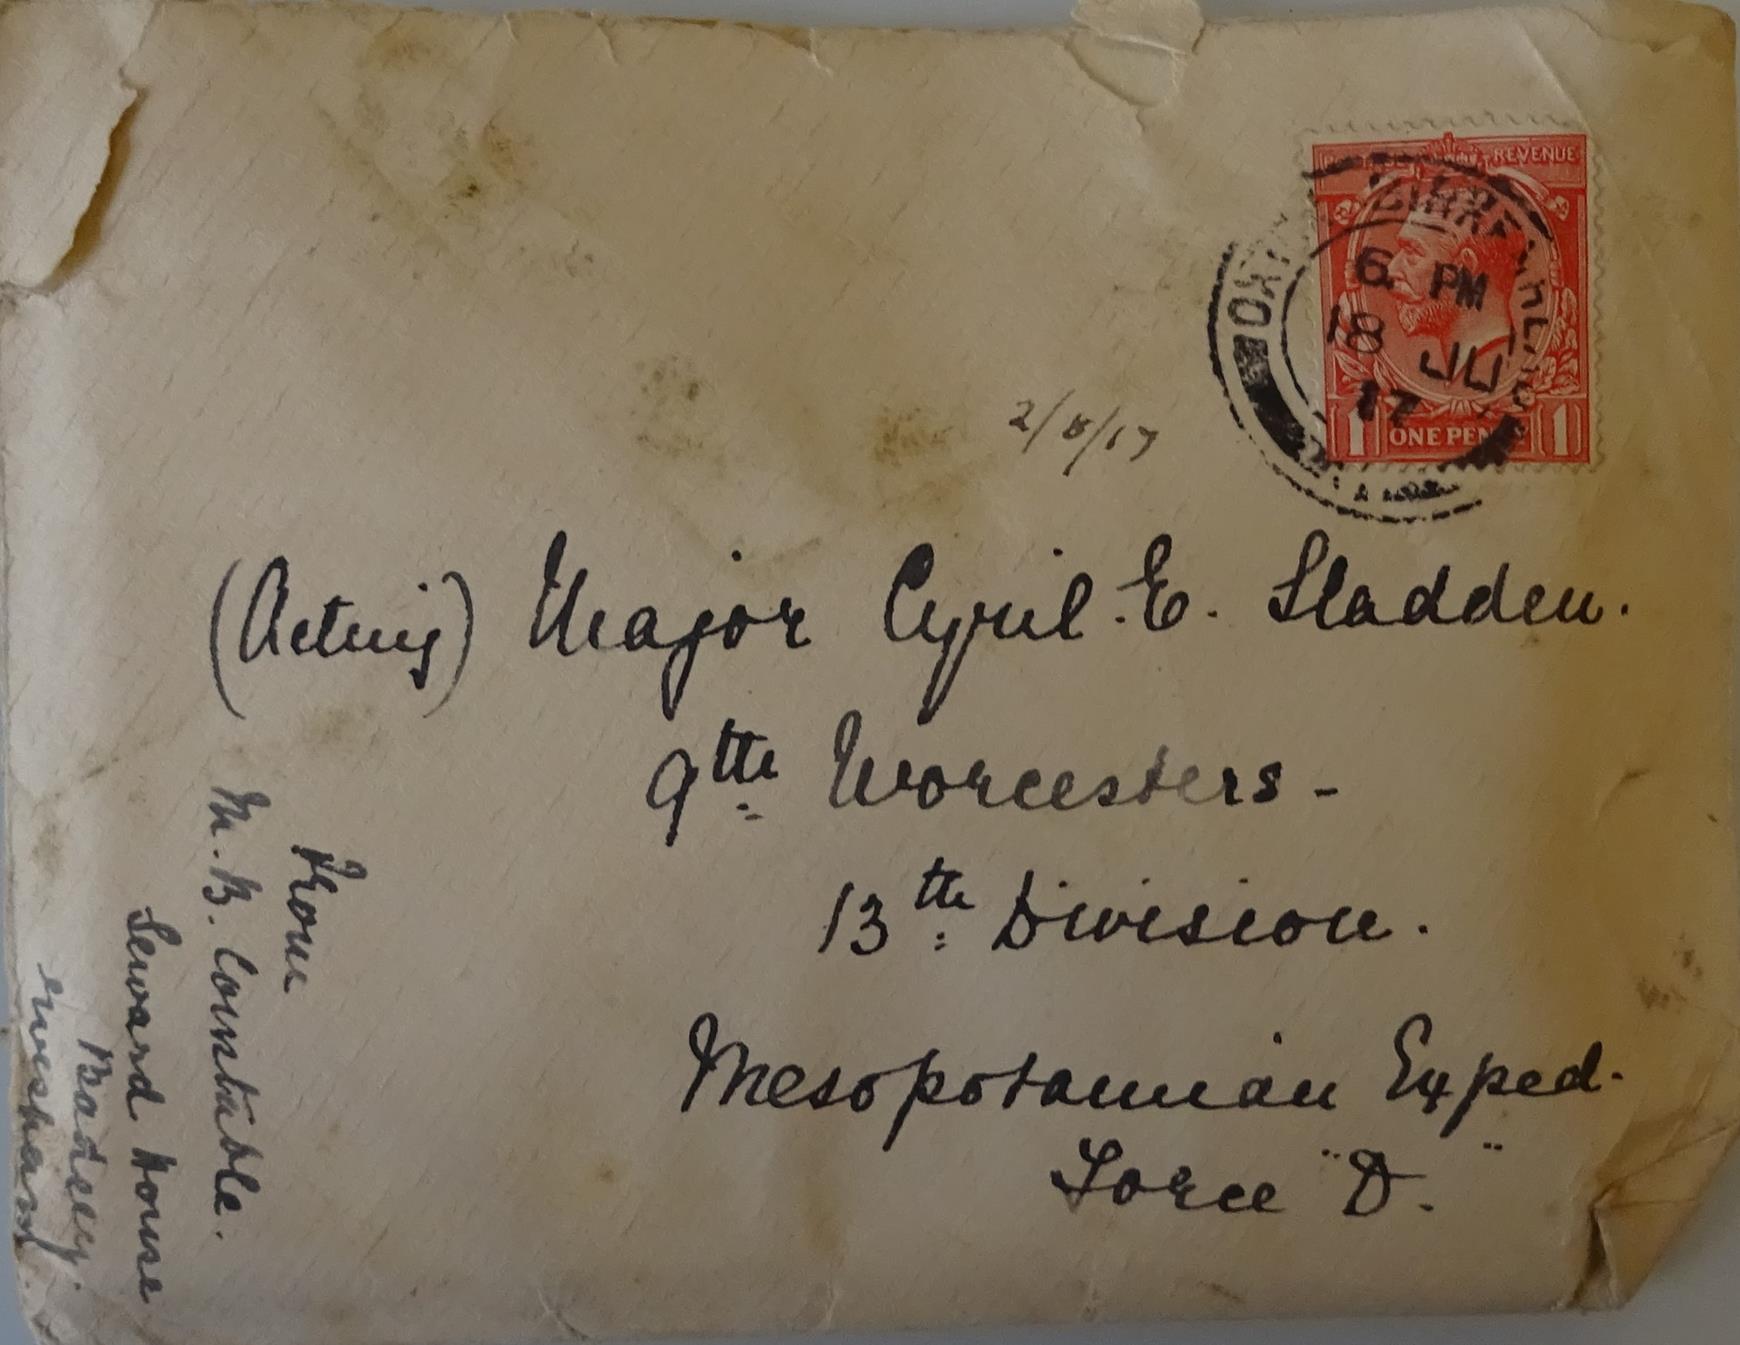 POSTAGE REVENUE
6 PM
18 JU
17
1 ONE PENNY 1
2/8/17
(Acting) Major Cyril. E. Sladden.
9th Worcesters -
13th Division.
Mesopotamian Exped.
Force "D."
From
M. B. Constable.
Seward House
Badsey.
Evesham.